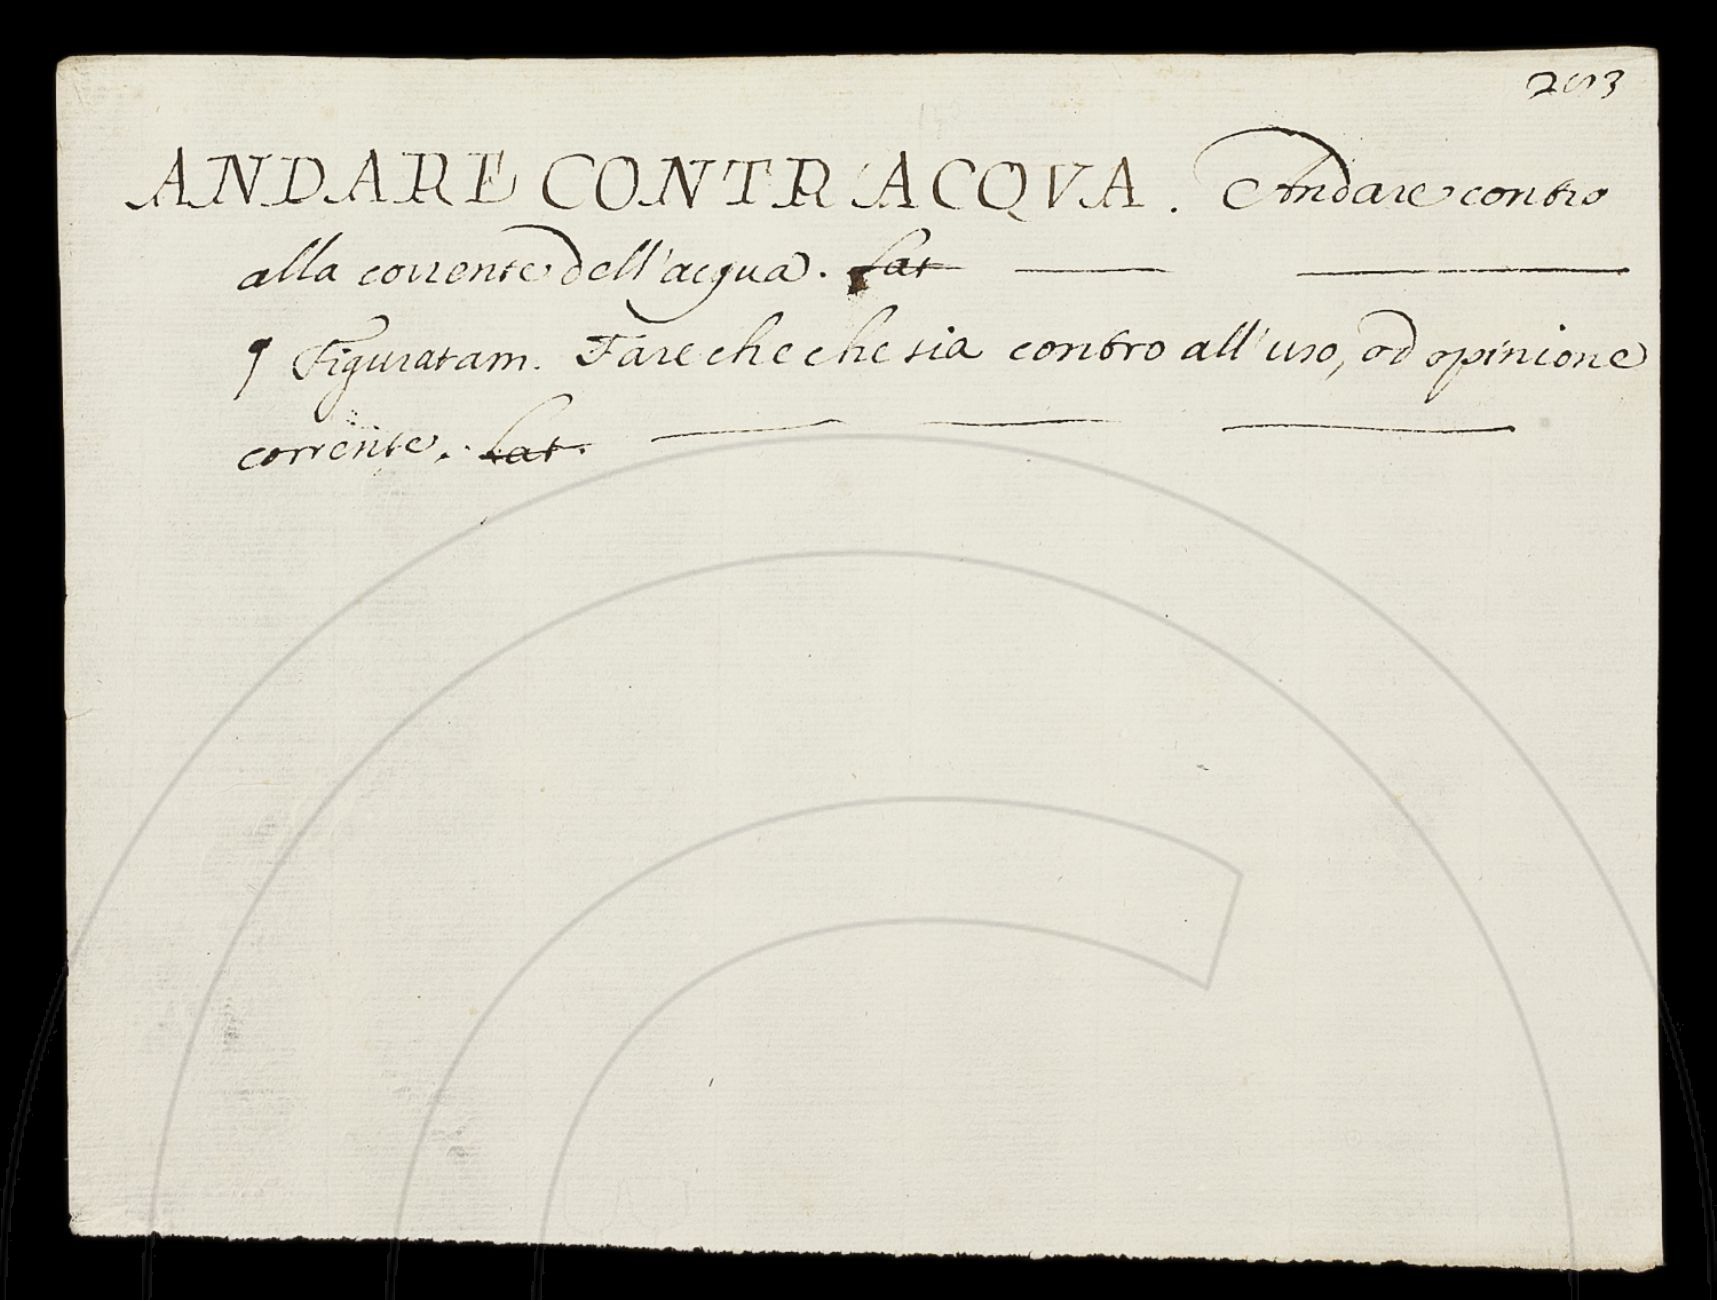 253
ANDARE CONTR'ACQVA. Andare contro
alla corrente dell'acqua. Lat
¶ Figuratam. Fare che che sia contro all'uso, od opinione
corrente. Lat.